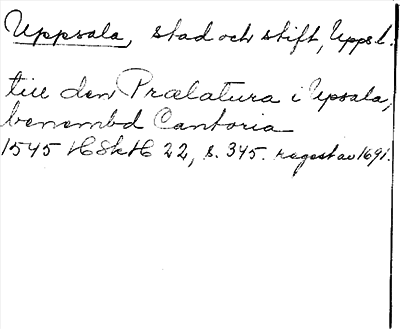 Uppsala, stad och stift, Uppl.
till den Prælatura i Upsala,
benembd Cantoria
1545 HSkH 22, s. 345. regest av 1691.